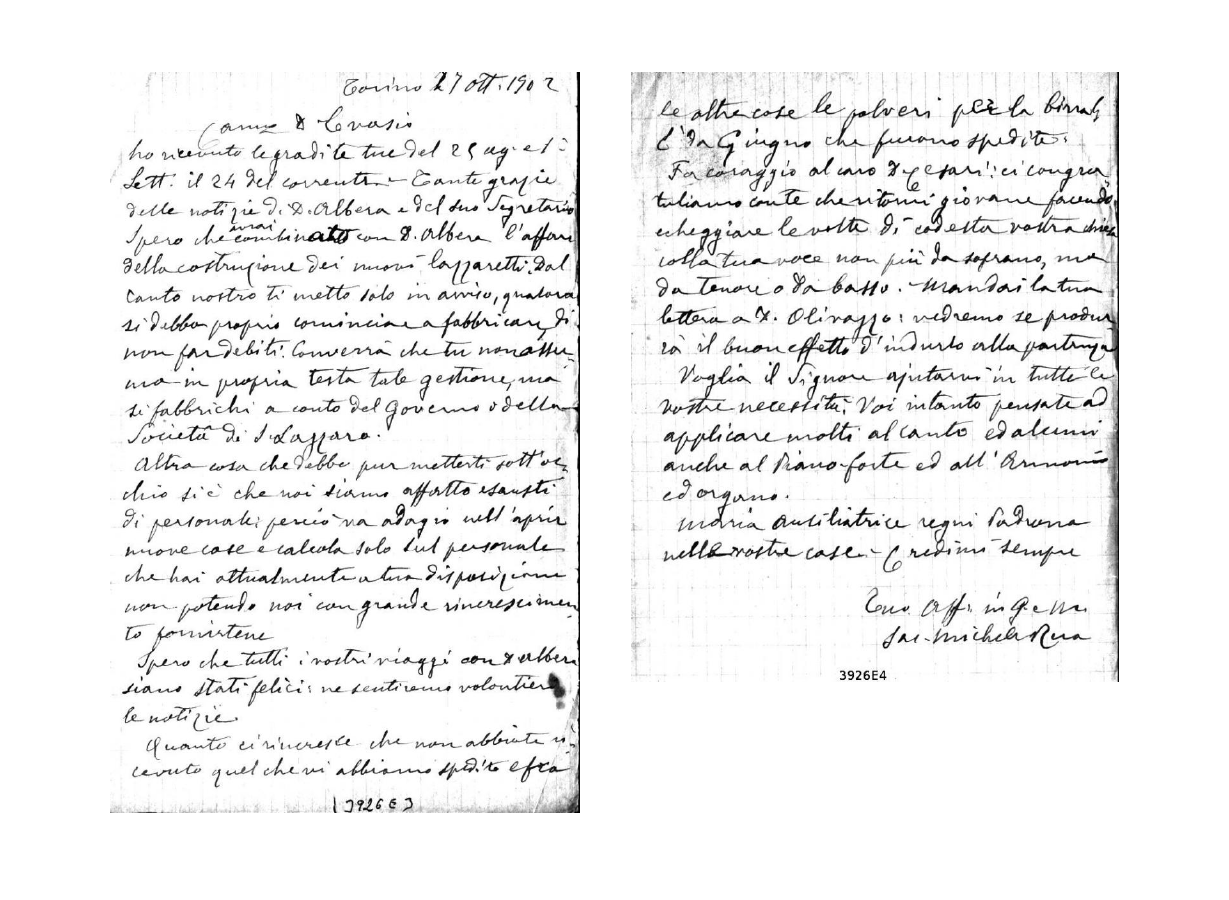 Torino 27 Ott. 1902
Carmo D. Evasio
ho ricevuto le gradite tue del 25 ag. e 1°
Sett. il 24 del corrente. - Tante grazie
delle notizie di D. Albera e del suo Segretario
Spero che avrai combinato con D. Albera l'affare
della costruzione dei nuovi lazzaretti. Dal
canto nostro ti metto solo in avviso, qualora
si debba proprio cominciare a fabbricare, di
non far debiti. Converrà che tu non assu-
ma in propria testa tale gestione, ma
si fabbrichi a conto del Governo o della
Società di S. Lazzaro.
Altra cosa che debbo pur metterti sott'oc-
chio si è che noi siamo affatto esausti
di personale; perciò va adagio nell'aprir
nuove case e calcola solo sul personale
che hai attualmente a tua disposizione
non potendo noi con grande rincrescimen
to fornirtene
Spero che tutti i vostri viaggi con D. Albera
siano stati felici: ne sentiremo volontieri
le notizie.
Quanto ci rincresce che non abbiate ri-
cevuto quel che vi abbiamo spedito e fra
3926E3
le altre cose le polveri per la birra!
È da Giugno che furono spedite.
Fa coraggio al caro D. Cesari: ci congra
tuliamo con te che ritorni giovane facendo
echeggiare le volte di codesta vostra chiesa
colla tua voce non più da soprano, ma
da tenore o da basso. Mandai la tua
lettera a D. Olivazzo: vedremo se produr
rà il buon effetto d'indurlo alla partenza
Voglia il Signore ajutarvi in tutte le
vostre necessità. Voi intanto pensate ad
applicare molti al canto ed alcuni
anche al Piano-forte ed all'Armonio
ed organo.
Maria Ausiliatrice regni Padrona
nelle vostre case. - Credimi sempre
Tuo aff. in G. e M.
Sac. Michele Rua
3926E4